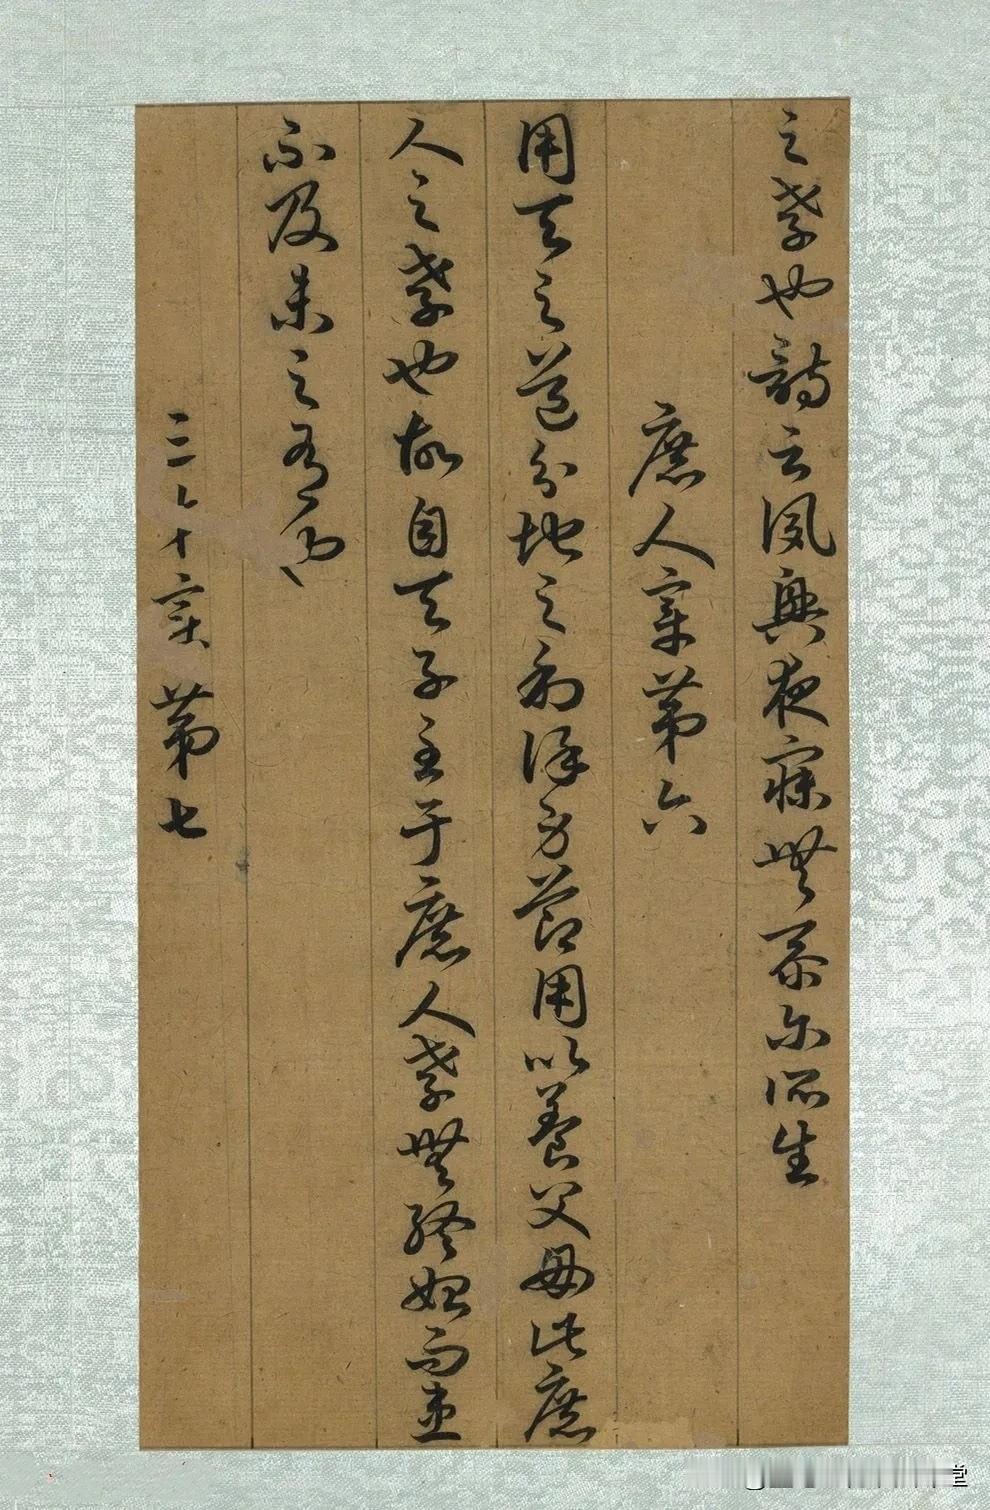 之孝也詩云夙興夜寐無忝尔所生
庶人章第六
用天之道分地之利謹身節用以養父母此庶
人之孝也故自天子至于庶人孝無終始而患
不及未之有也
三才章第七
堂